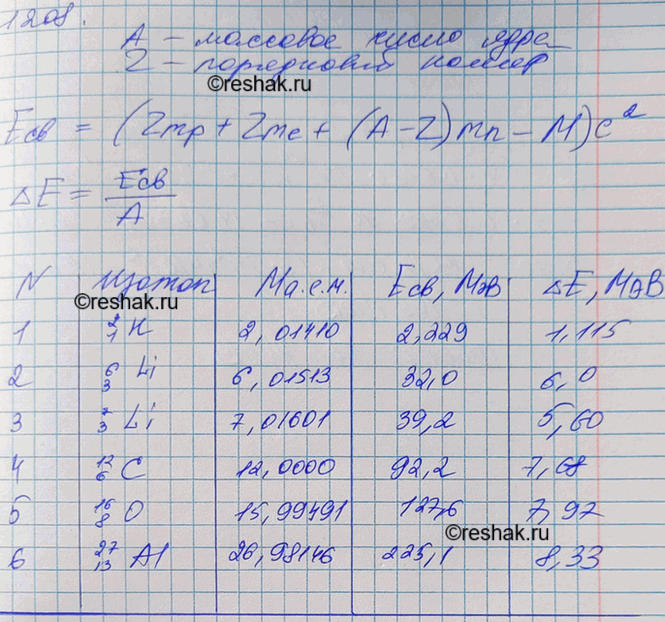 1208.
A – массовое число ядра
Z – порядковый номер
©reshak.ru
Eсв = (Zmp + Zme + (A – Z)mn – M)c²
ΔE = Eсв/A
N Изотоп Mа.е.м. Eсв, МэВ ΔE, МэВ
©reshak.ru
1 ²₁H 2,01410 2,229 1,115
2 ⁶₃Li 6,01513 32,0 6,0
3 ⁷₃Li 7,01601 39,2 5,60
4 ¹²₆C 12,0000 92,2 7,68
5 ¹⁶₈O 15,99491 127,6 7,97
©reshak.ru
6 ²⁷₁₃Al 26,98146 225,1 8,33